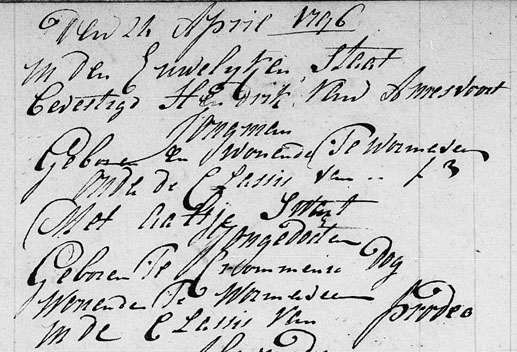 Den 24 April 1796
in den Euwelyken Staat
Bevestigd Hendrik Van Amesvoort
Jongman
Geboren En Wonende Te Wormeveer
onder de Classis van .. f 3
Met Aaltje Smit
Jongedogter
Geboren Te Krommenie Dog
Wonende Te Wormeveer
in de Classis Van prodeo